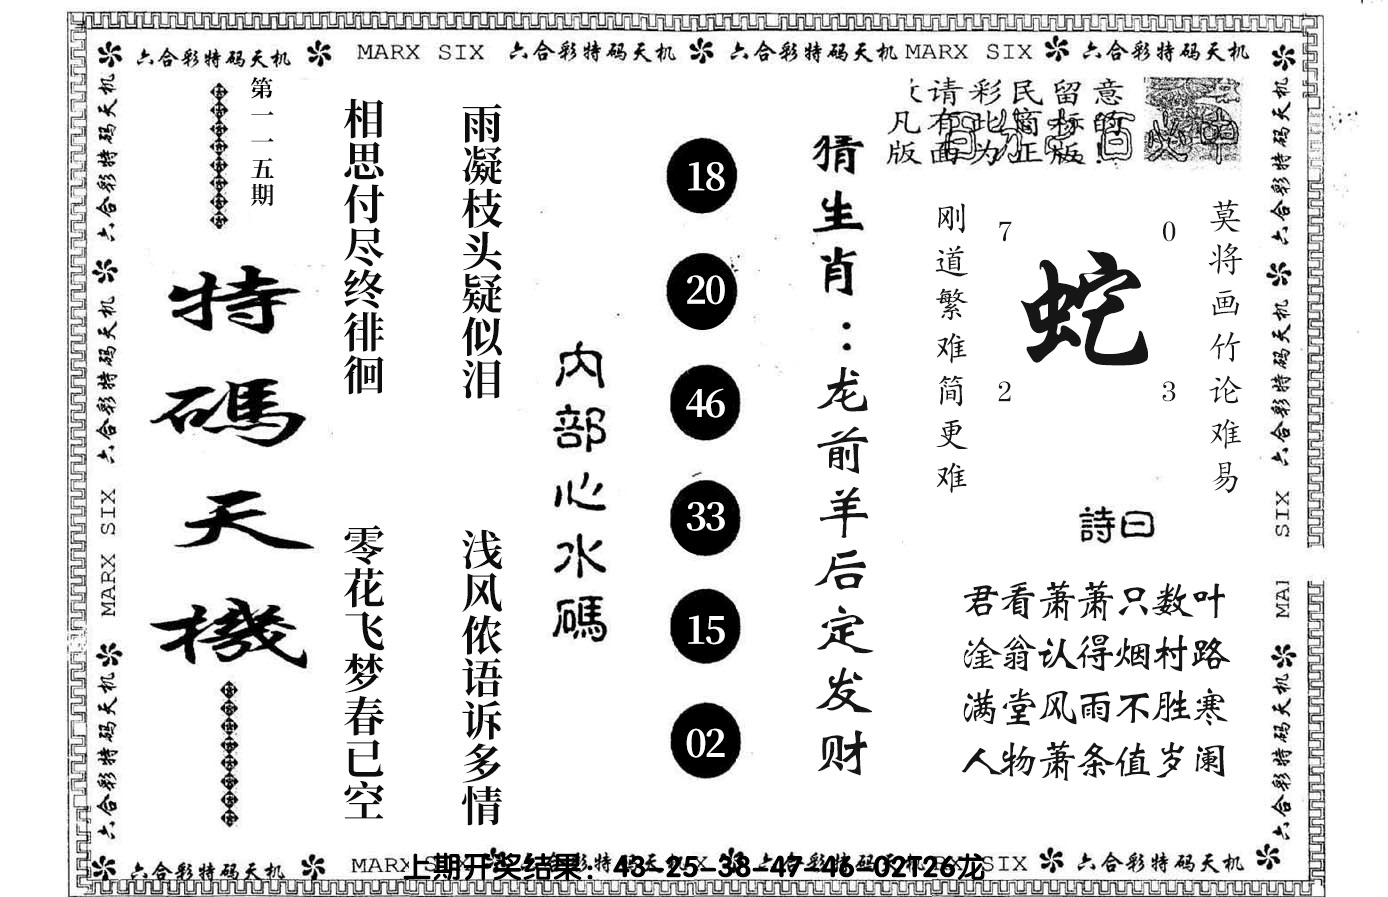 六合彩特码天机 MARX SIX 六合彩特码天机 六合彩特码天机 MARX SIX 六合彩特码天机
六合彩特码天机
六合彩特码天机
MARX SIX
六合彩特码天机
第一一五期
特碼天機
相思付尽终徘徊
零花飞梦春已空
雨凝枝头疑似泪
浅风侬语诉多情
内部心水碼
18
20
46
33
15
02
猜生肖:龙前羊后定发财
请彩民留意
凡有此窗标的
版面为正版!
刚道繁难简更难
7
0
蛇
2
3
莫将画竹论难易
詩曰
君看萧萧只数叶
淦翁认得烟村路
满堂风雨不胜寒
人物萧条值岁阑
六合彩特码天机
六合彩特码天机
SIX
MAI
六合彩特码天机
六合彩特码天机 MARX SIX 六合彩特码天机 六合彩特码天机 MARX SIX 六合彩特码天机
上期开奖结果：43-25-38-47-46-02T26龙